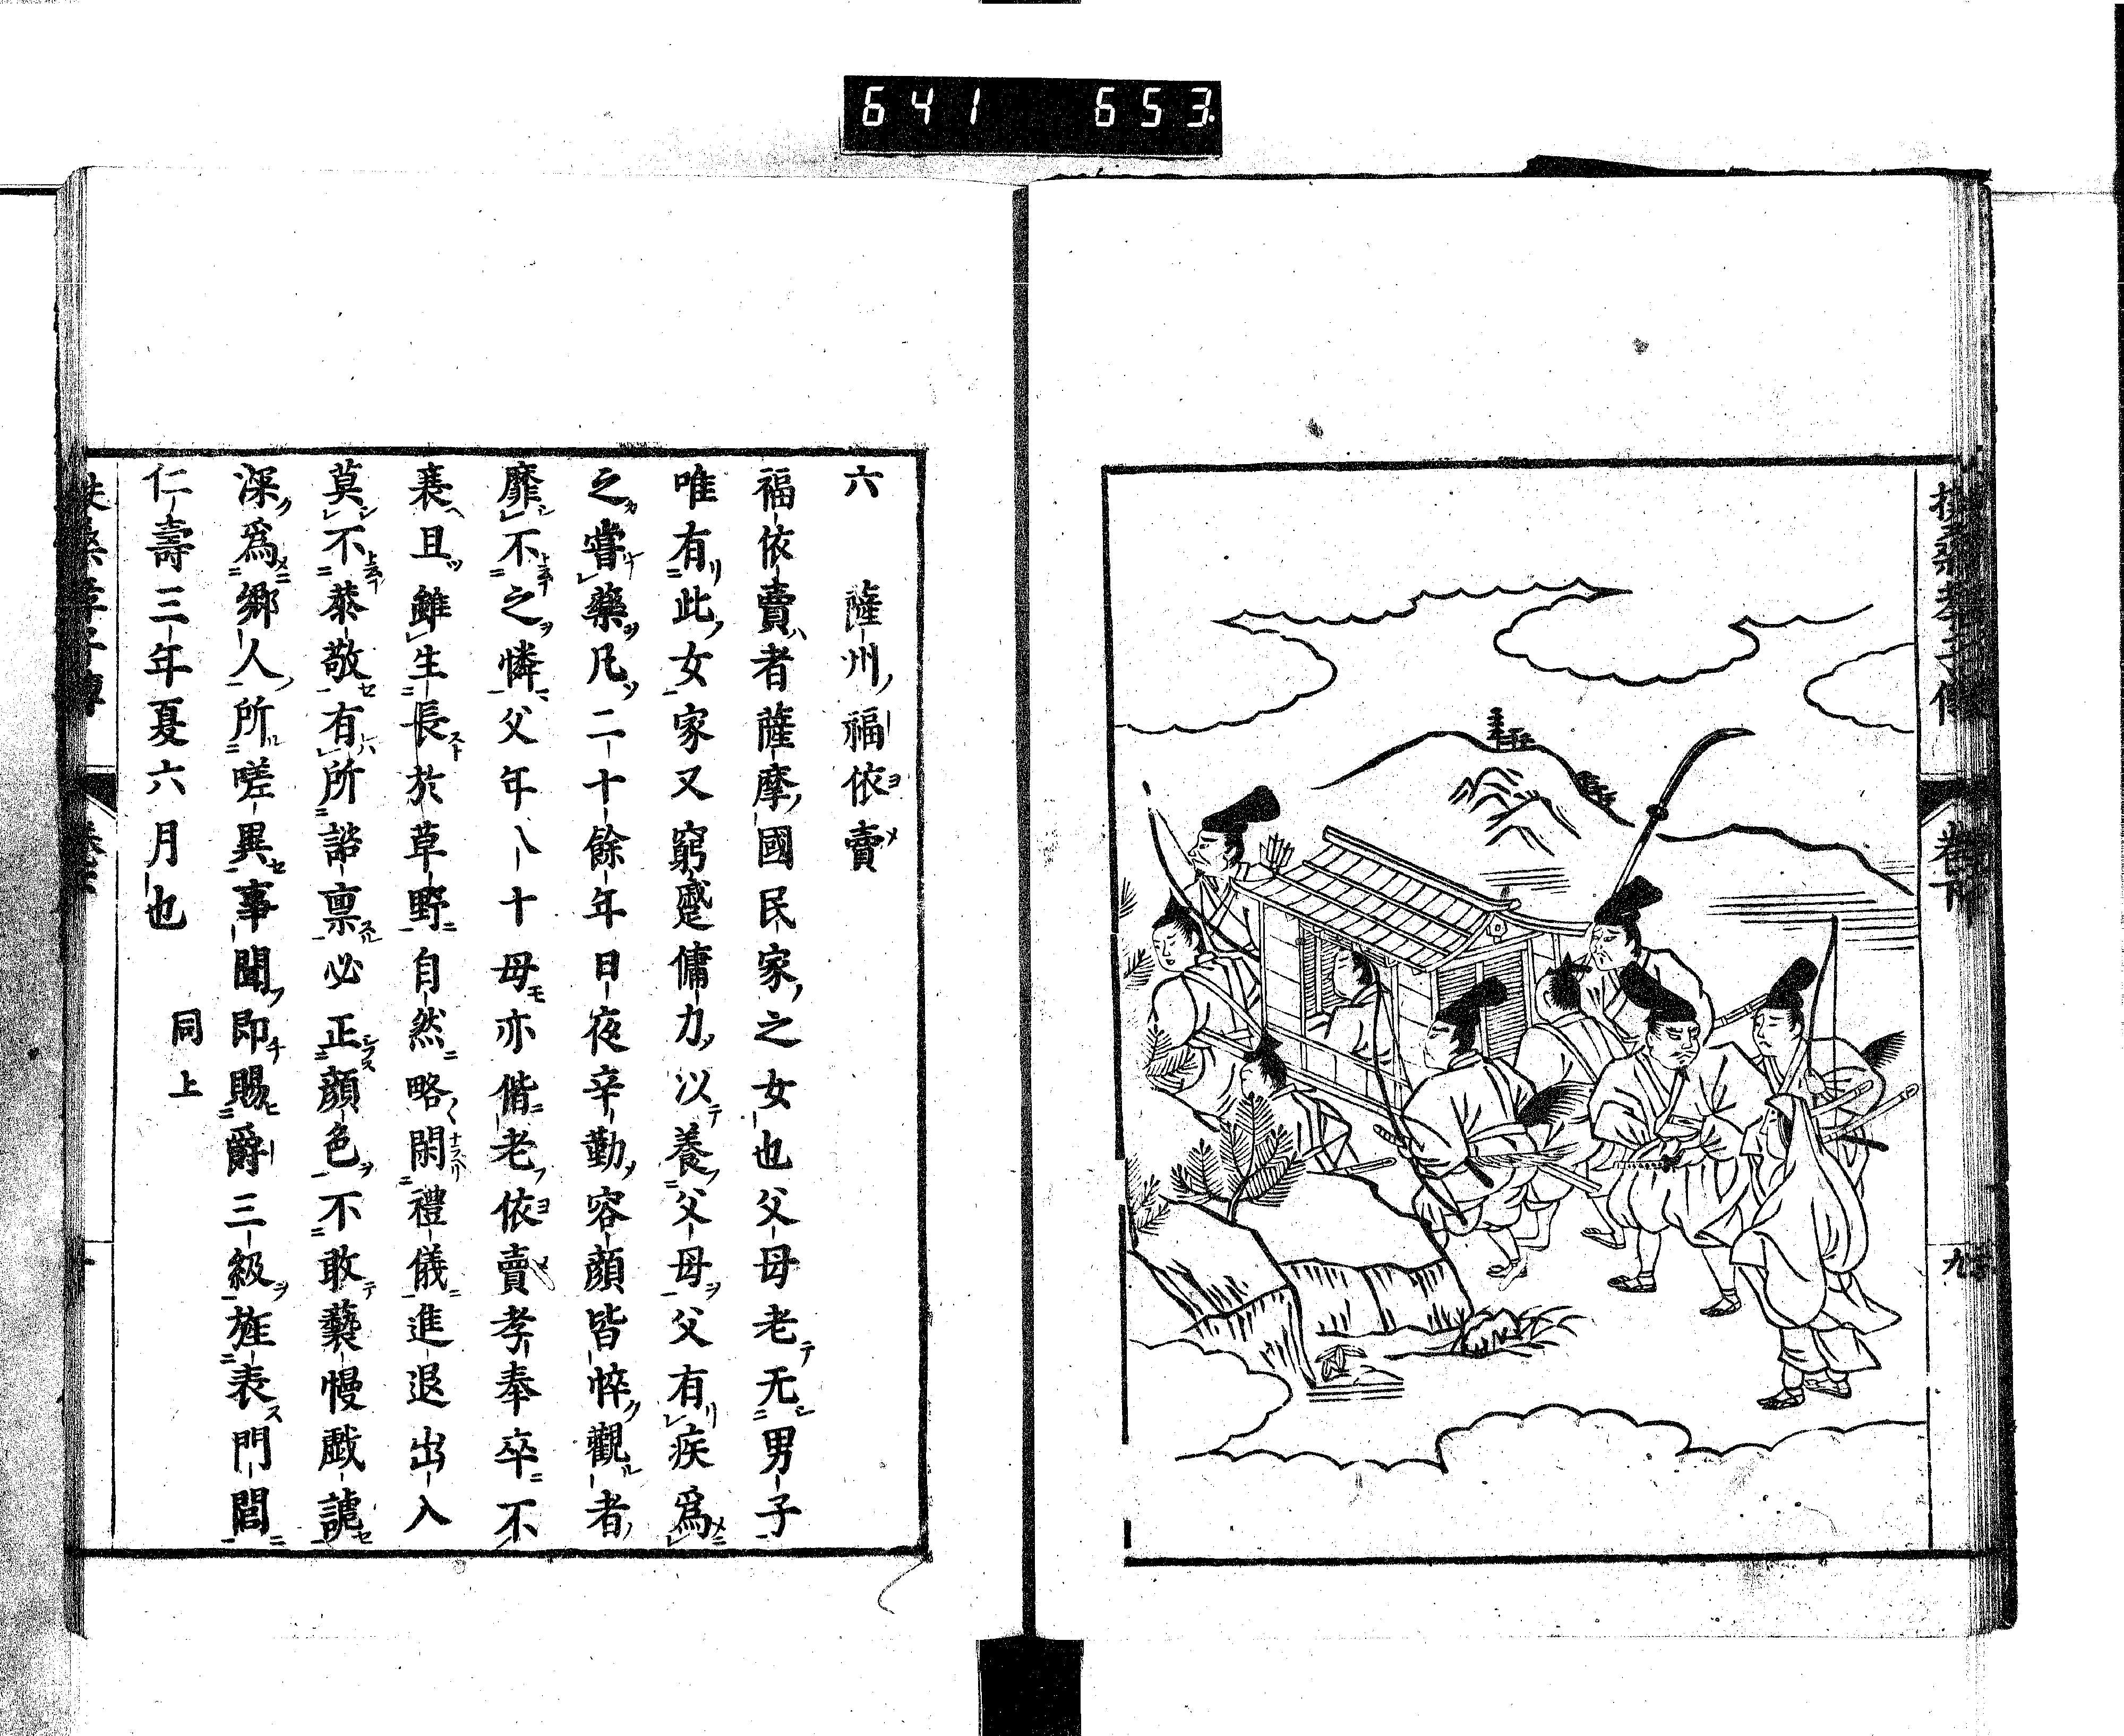 641 653
扶桑孝子傳
卷下
九
六 薩州福依賣
福依賣者薩摩國民家之女也父母老无男子
唯有此女家又窮蹙傭力以養父母父有疾爲
之嘗藥凡二十餘年日夜辛勤容顏皆悴觀者
靡不之憐父年八十母亦偕老依賣孝奉卒不
衰且雖生長於草野自然略閑禮儀進退出入
莫不恭敬有所諮禀必正顏色不敢褻慢戯謔
深爲鄉人所嗟異事聞即賜爵三級旌表門閭
仁壽三年夏六月也 同上